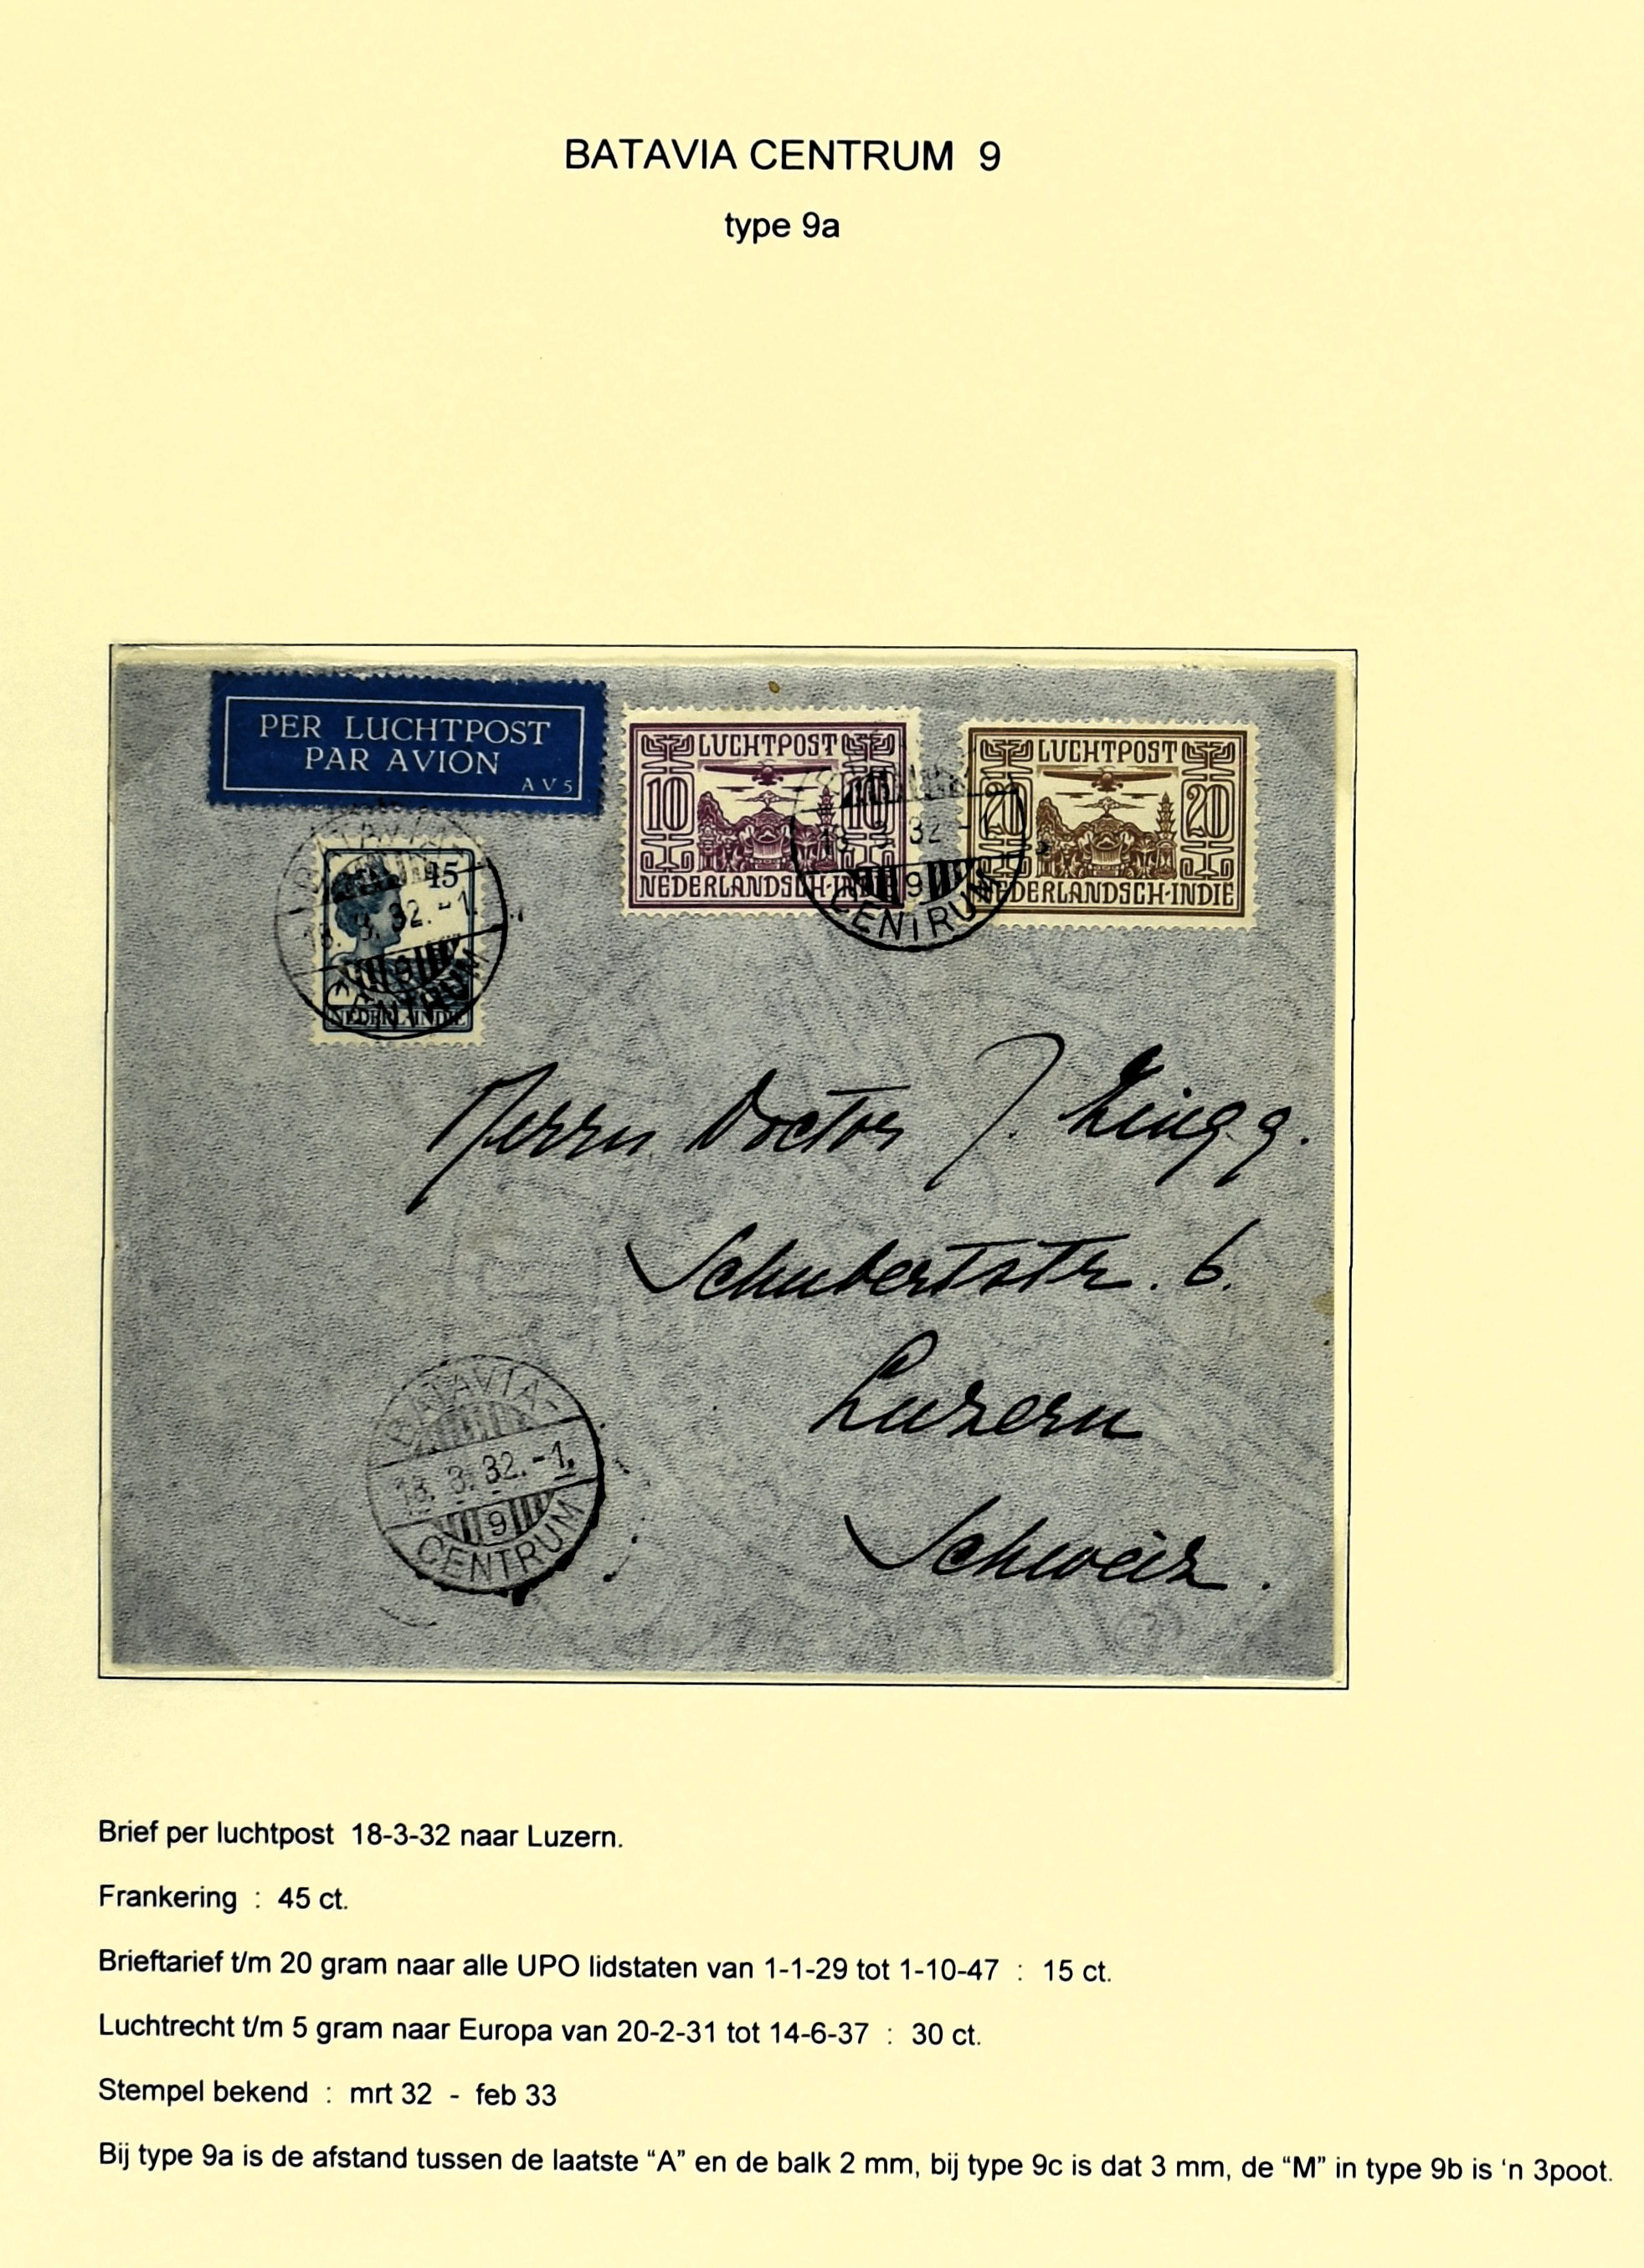 BATAVIA CENTRUM 9
type 9a
PER LUCHTPOST
PAR AVION
AV5
LUCHTPOST
10 10
NEDERLANDSCH-INDIE
LUCHTPOST
20 20
NEDERLANDSCH-INDIE
BATAVIA
18. 3. 32. -1.
9
CENTRUM
15
NEDERL-INDIE
18. 3. 32 -1.
9
CENTRUM
Herrn Doctor J. Zingg.
Schubertstr. 6.
Luzern
Schweiz.
BATAVIA
18. 3. 32. -1.
9
CENTRUM
Brief per luchtpost 18-3-32 naar Luzern.
Frankering : 45 ct.
Brieftarief t/m 20 gram naar alle UPO lidstaten van 1-1-29 tot 1-10-47 : 15 ct.
Luchtrecht t/m 5 gram naar Europa van 20-2-31 tot 14-6-37 : 30 ct.
Stempel bekend : mrt 32 - feb 33
Bij type 9a is de afstand tussen de laatste “A” en de balk 2 mm, bij type 9c is dat 3 mm, de “M” in type 9b is ‘n 3poot.